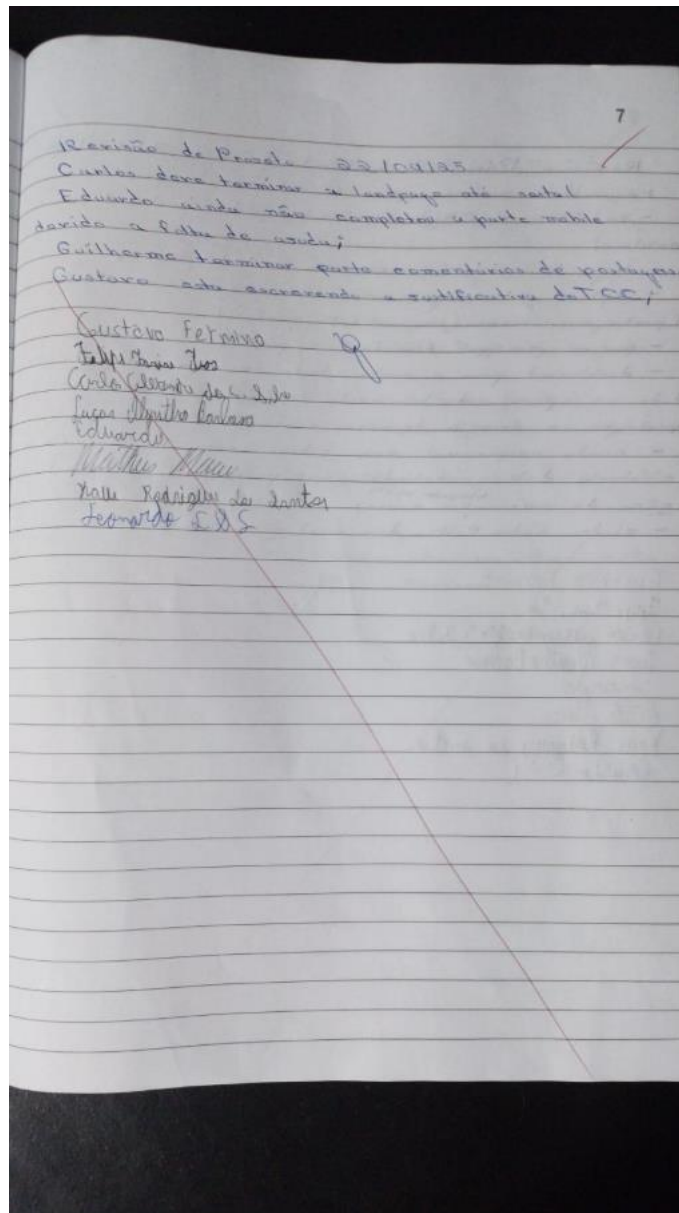 7
Revisão de Projeto 22/04/25
Carlos deve terminar a landpage até sexta!
Eduardo ainda não completou a parte mobile
devido a falta de ajuda;
Guilherme terminar parte comentários de postagens
Gustavo esta escrevendo a justificativa do TCC;
Gustavo Fermino
Felipe
Carlos Alexandre da C. Silva
Lucas Barbosa
Eduardo
Matheus
Rodrigues dos Santos
Leonardo